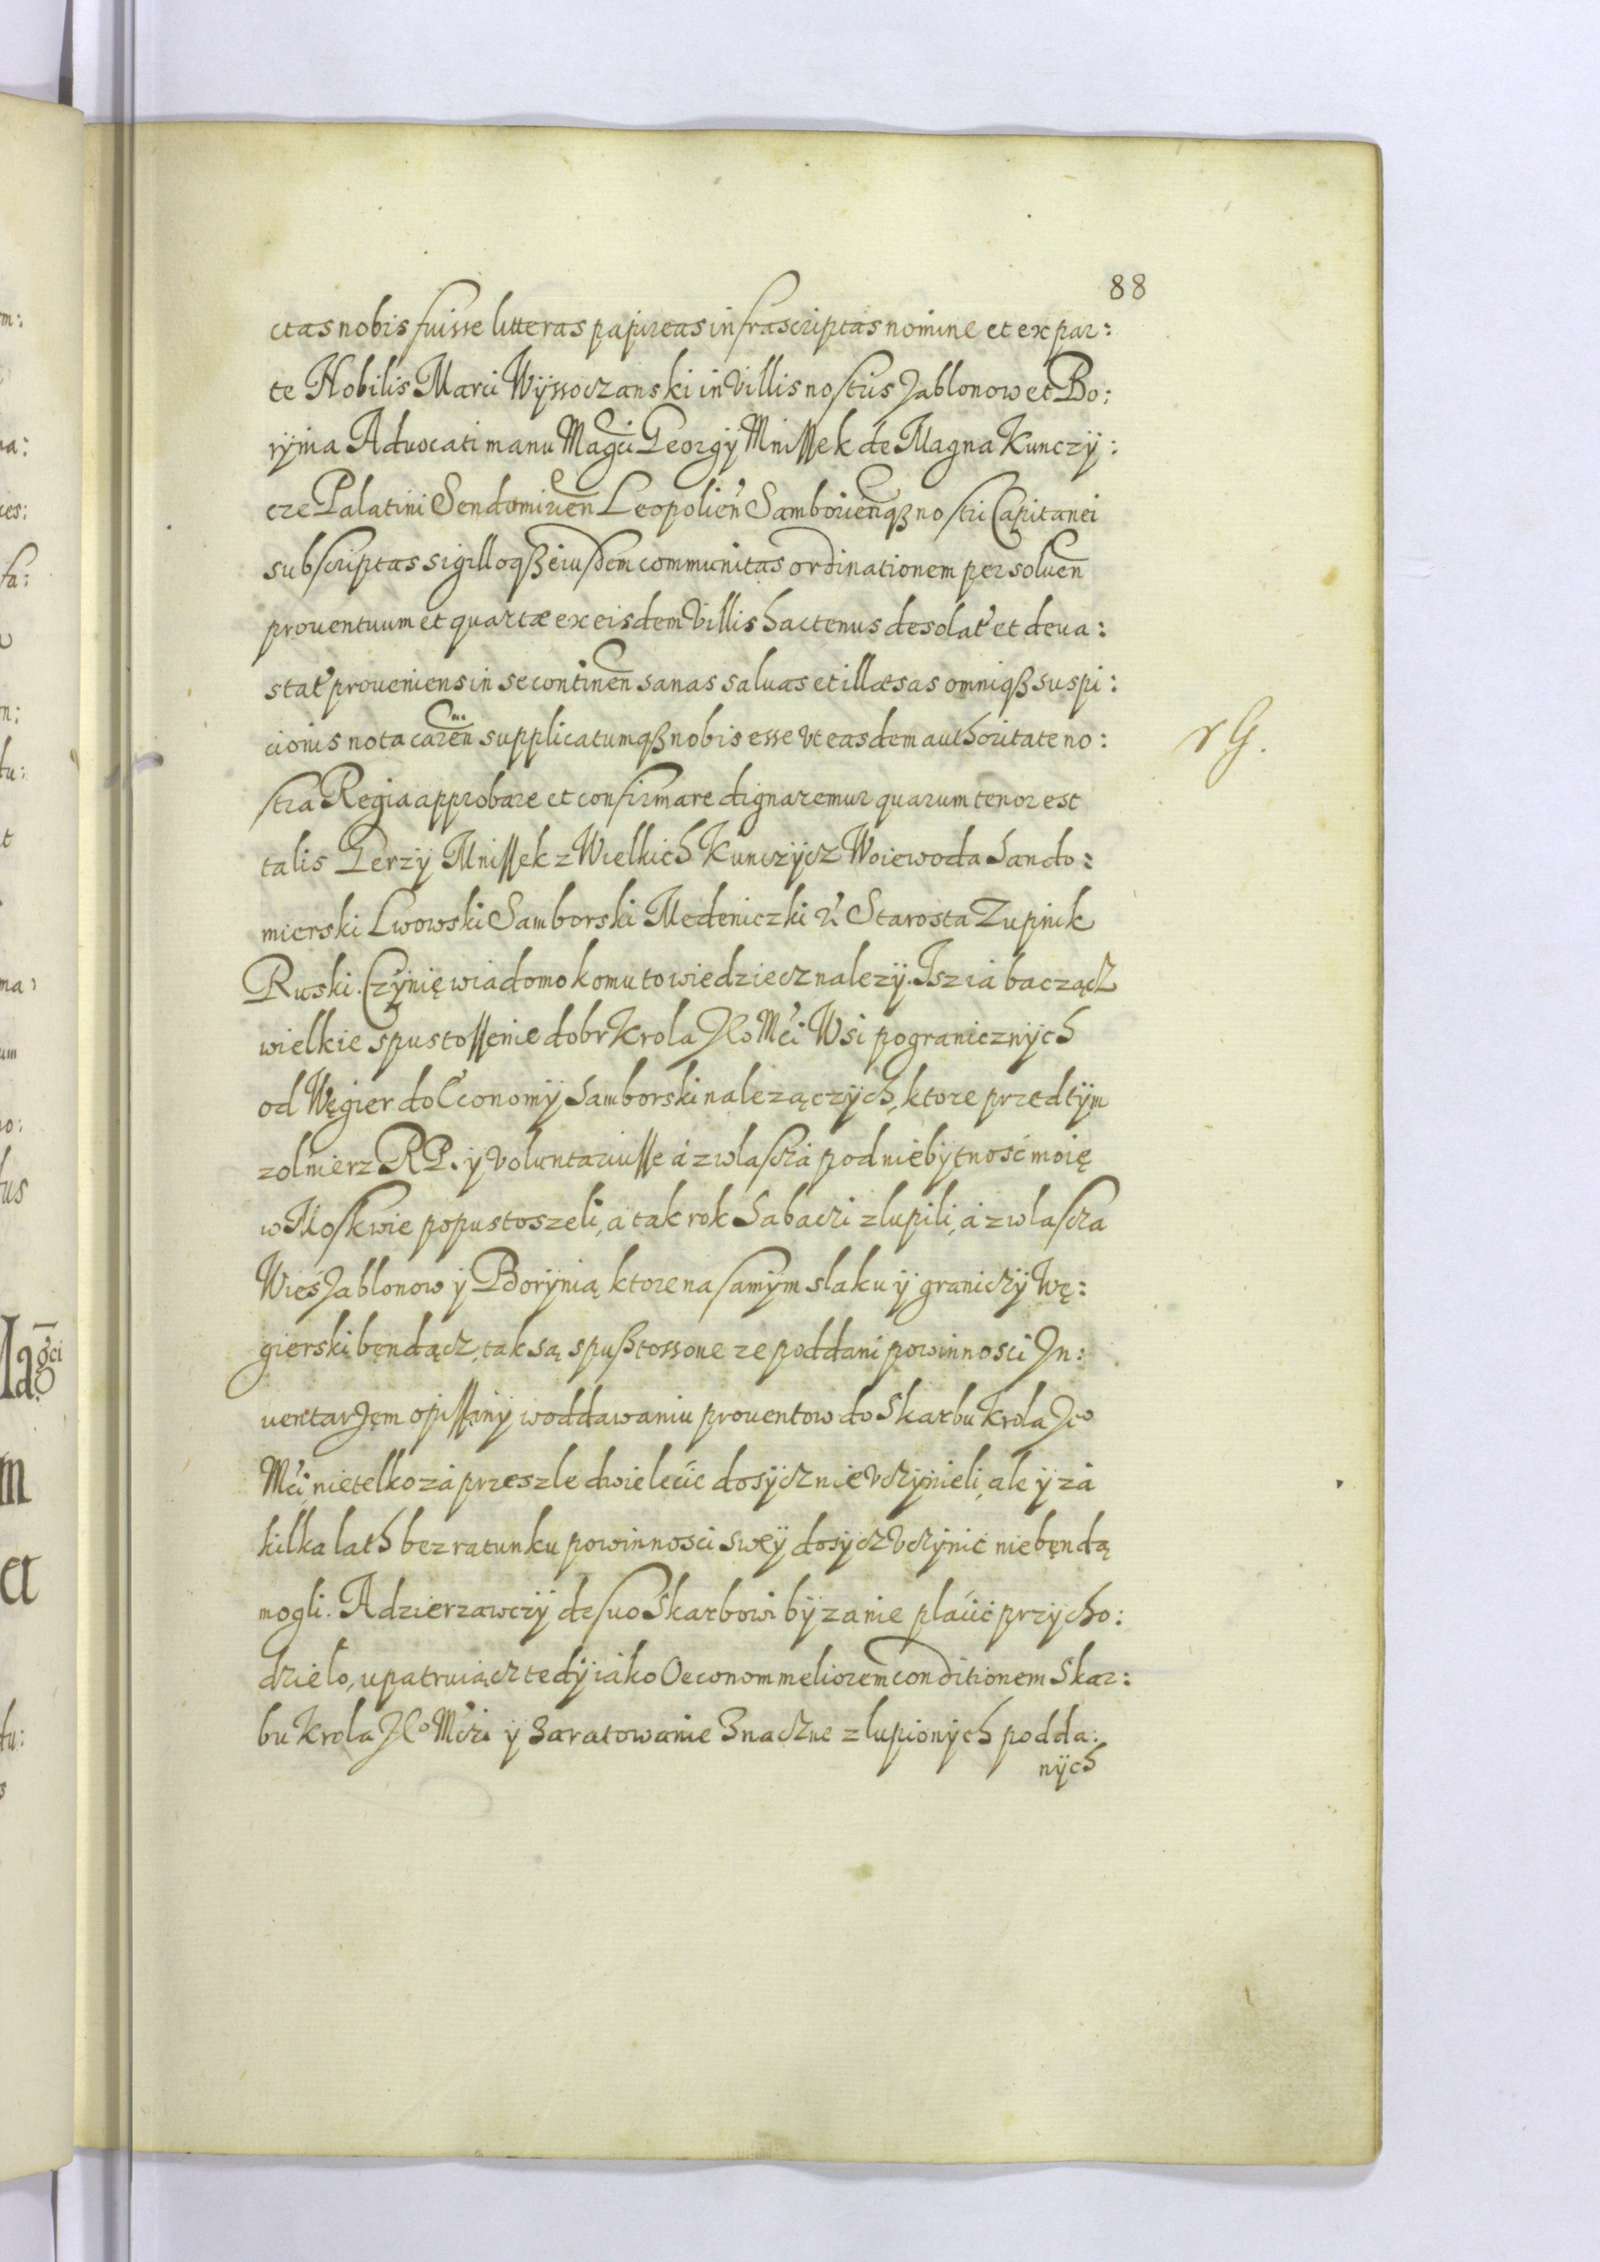 88
ctas nobis fuisse litteras papireas infrascriptas nomine et ex par:
te Nobilis Marci Wyssoczanski in Villis nostris Jablonow et Bo:
rynia Advocati manu Magci Georgÿ Mnissek de Magna Kunczÿ:
cze Palatini Sendomirien Leopolien Samborienqß nostri Capitanei
subscriptas sigilloqß eiusdem communitas ordinationem persoluen
prouentuum et quartæ ex eisdem Villis hactenus desolat et deua:
stat proueniens in se continen sanas saluas et illæsas omniqß suspi:
cionis nota caren supplicatumqß nobis esse vt easdem authoritate no:
stra Regia approbare et confirmare dignaremur quarum tenor est
talis Jerzÿ Mnissek z Wielkich Kunczÿcz Woiewoda Sando:
mierski Lwowski Samborski Medeniczki Starosta Zupnik
Ruski. Czÿnię wiadomo komu to wiedziecz nalezÿ. Isz ia bacząc
wielkie spustossenie dobr Krola JKo Mći Wsi pogranicznÿch
od Węgier do Œconomÿ Samborski nalezączÿch, ktore przedtÿm
zolnierz RP. ÿ Voluntariusse á zwlascza pod niebÿtnosć moię
w Moskwie popustoszeli, á tak rok Sabaczi zlupili, á zwlascza
Wieś Jablonow ÿ Borÿnią ktore na samÿm slaku ÿ graniczÿ Wę:
gierski bendącz, tak są spußtossone ze poddani powinnosci In:
uentarzem opissanÿ w oddawaniu prouentow do Skarbu Krola Jeo
Mći nietelko zá przeszle dwie lecie dosÿcz nie vczÿnieli, ale ÿ zá
kilka lath bez ratunku powinnosci sweÿ dosÿcz vczÿnić niebendą
mogli. A dzierzawczÿ de suo Skarbowi bÿ za nie placić przÿcho:
dzielo, upatruiącz tedÿ iáko Oeconom meliorem conditionem Skar:
bu Krola JKo Mczi ÿ zaratowanie znaczne zlupionÿch podda:
nÿch